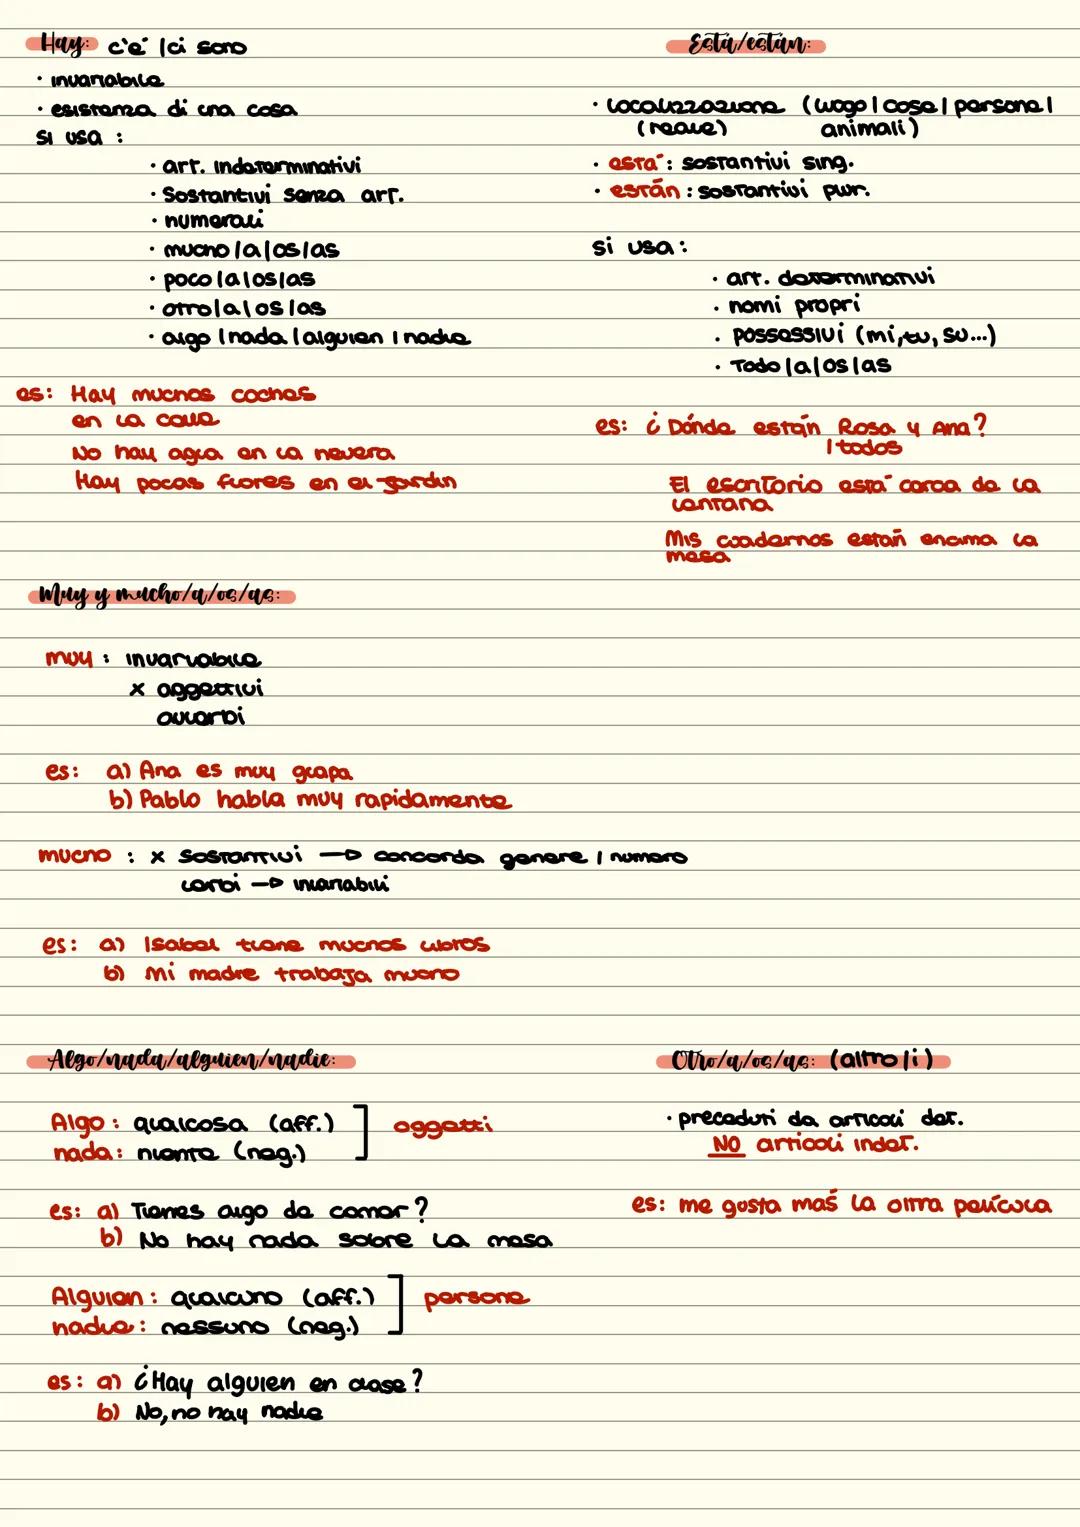 Hay: c'è /ci sono
· invariabile
· esistenza di una cosa
si usa :
· art. indeterminativi
· Sostantivi senza art.
· numerali
· mucho/a/os/as
· poco/a/os/as
· otro/a/os/as
· algo / nada / alguien / nadie
es: Hay muchos coches
en la calle
No hay agua en la nevera
Hay pocas flores en el jardín
Está/están:
· localizzazione (luogo / cose / persone /
(reale) animali)
· está : sostantivi sing.
· están : sostantivi plur.
si usa :
· art. determinativi
· nomi propri
· possessivi (mi, tu, su...)
· Todo/a/os/as
es: ¿Dónde están Rosa y Ana?
/ todos
El escritorio está cerca de la
ventana
Mis cuadernos están encima la
mesa
Muy y mucho/a/os/as:
muy : invariabile
x aggettivi
avverbi
es: a) Ana es muy guapa
b) Pablo habla muy rapidamente
mucho : x sostantivi → concorda genere / numero
verbi → invariabili
es: a) Isabel tiene muchos libros
b) Mi madre trabaja mucho
Algo/nada/alguien/nadie:
Algo : qualcosa (aff.) ] oggetti
nada : niente (neg.)
es: a) Tienes algo de comer?
b) No hay nada sobre la mesa
Alguien : qualcuno (aff.) ] persone
nadie : nessuno (neg.)
es: a) ¿Hay alguien en clase?
b) No, no hay nadie
Otro/a/os/as: (altro/i)
· preceduti da articoli det.
NO articoli indet.
es: me gusta maś la otra película